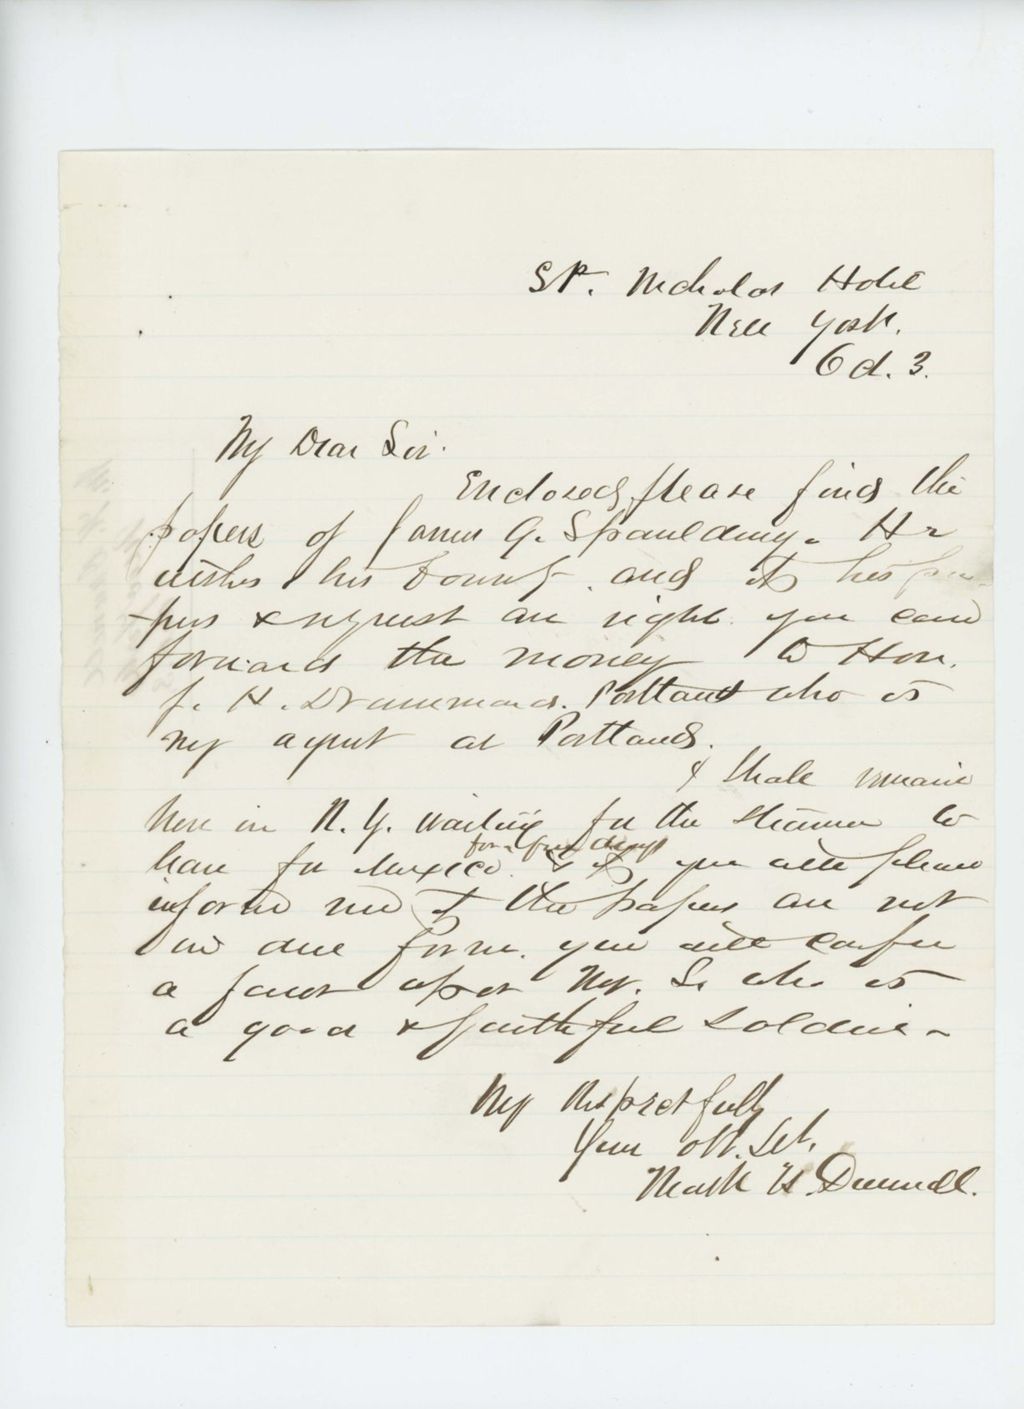 St. Nicholas Hotel
New York.
Oct. 3.
My Dear Sir.
Enclosed, please find the
papers of James G. Spaulding. He
wishes his bounty. and if his pa-
pers & request are right. you can
forward the money to Hon.
J. H. Drummond. Portland who is
my agent at Portland.
I shall remain
here in N. Y. waiting for the steamer to
for a few days
leave for Mexico. & if you will please
inform me if the papers are not
in due form. you will confer
a favor upon Mr. S. who is
a good & faithful soldier.
Very respectfully
Your obt. Svt.
Mark H. Dunnell.